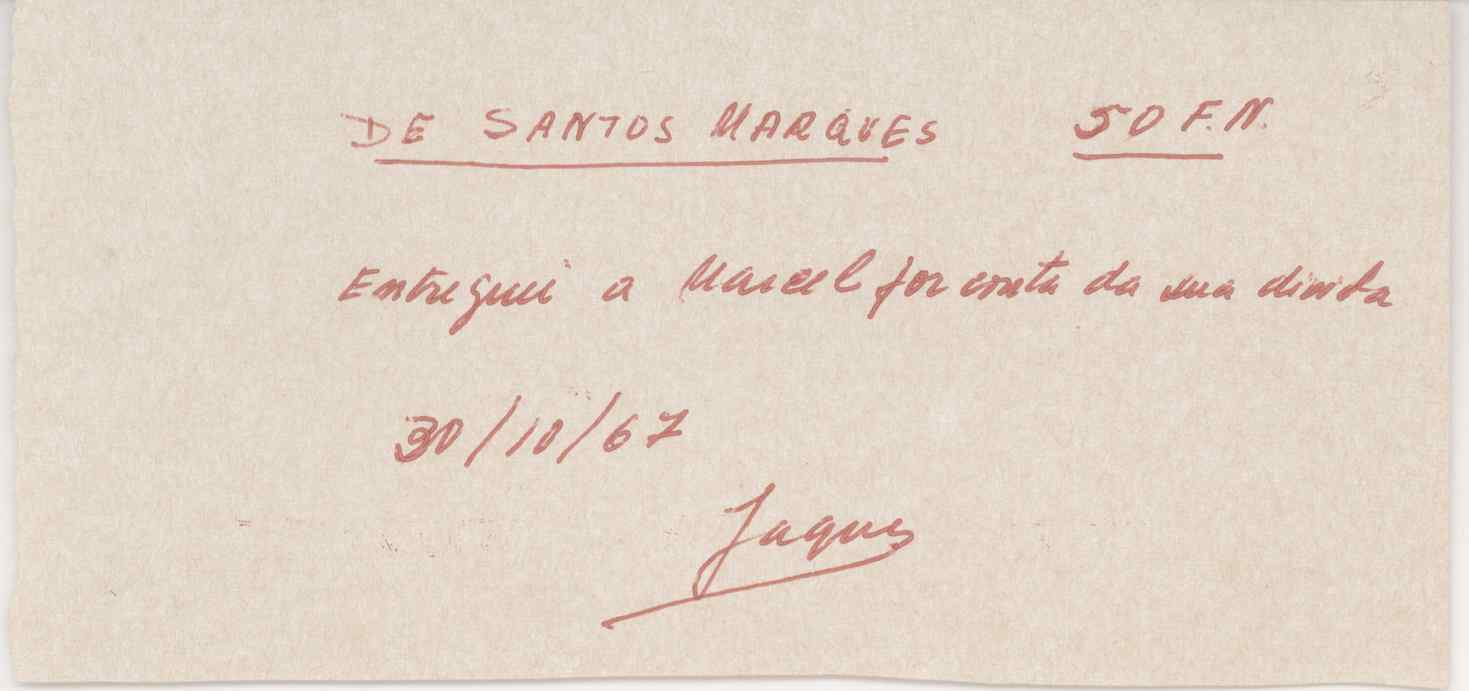 DE SANTOS MARQUES 50 F.N.
Entreguei a Marcel por conta da sua divida
30/10/67
Jaques